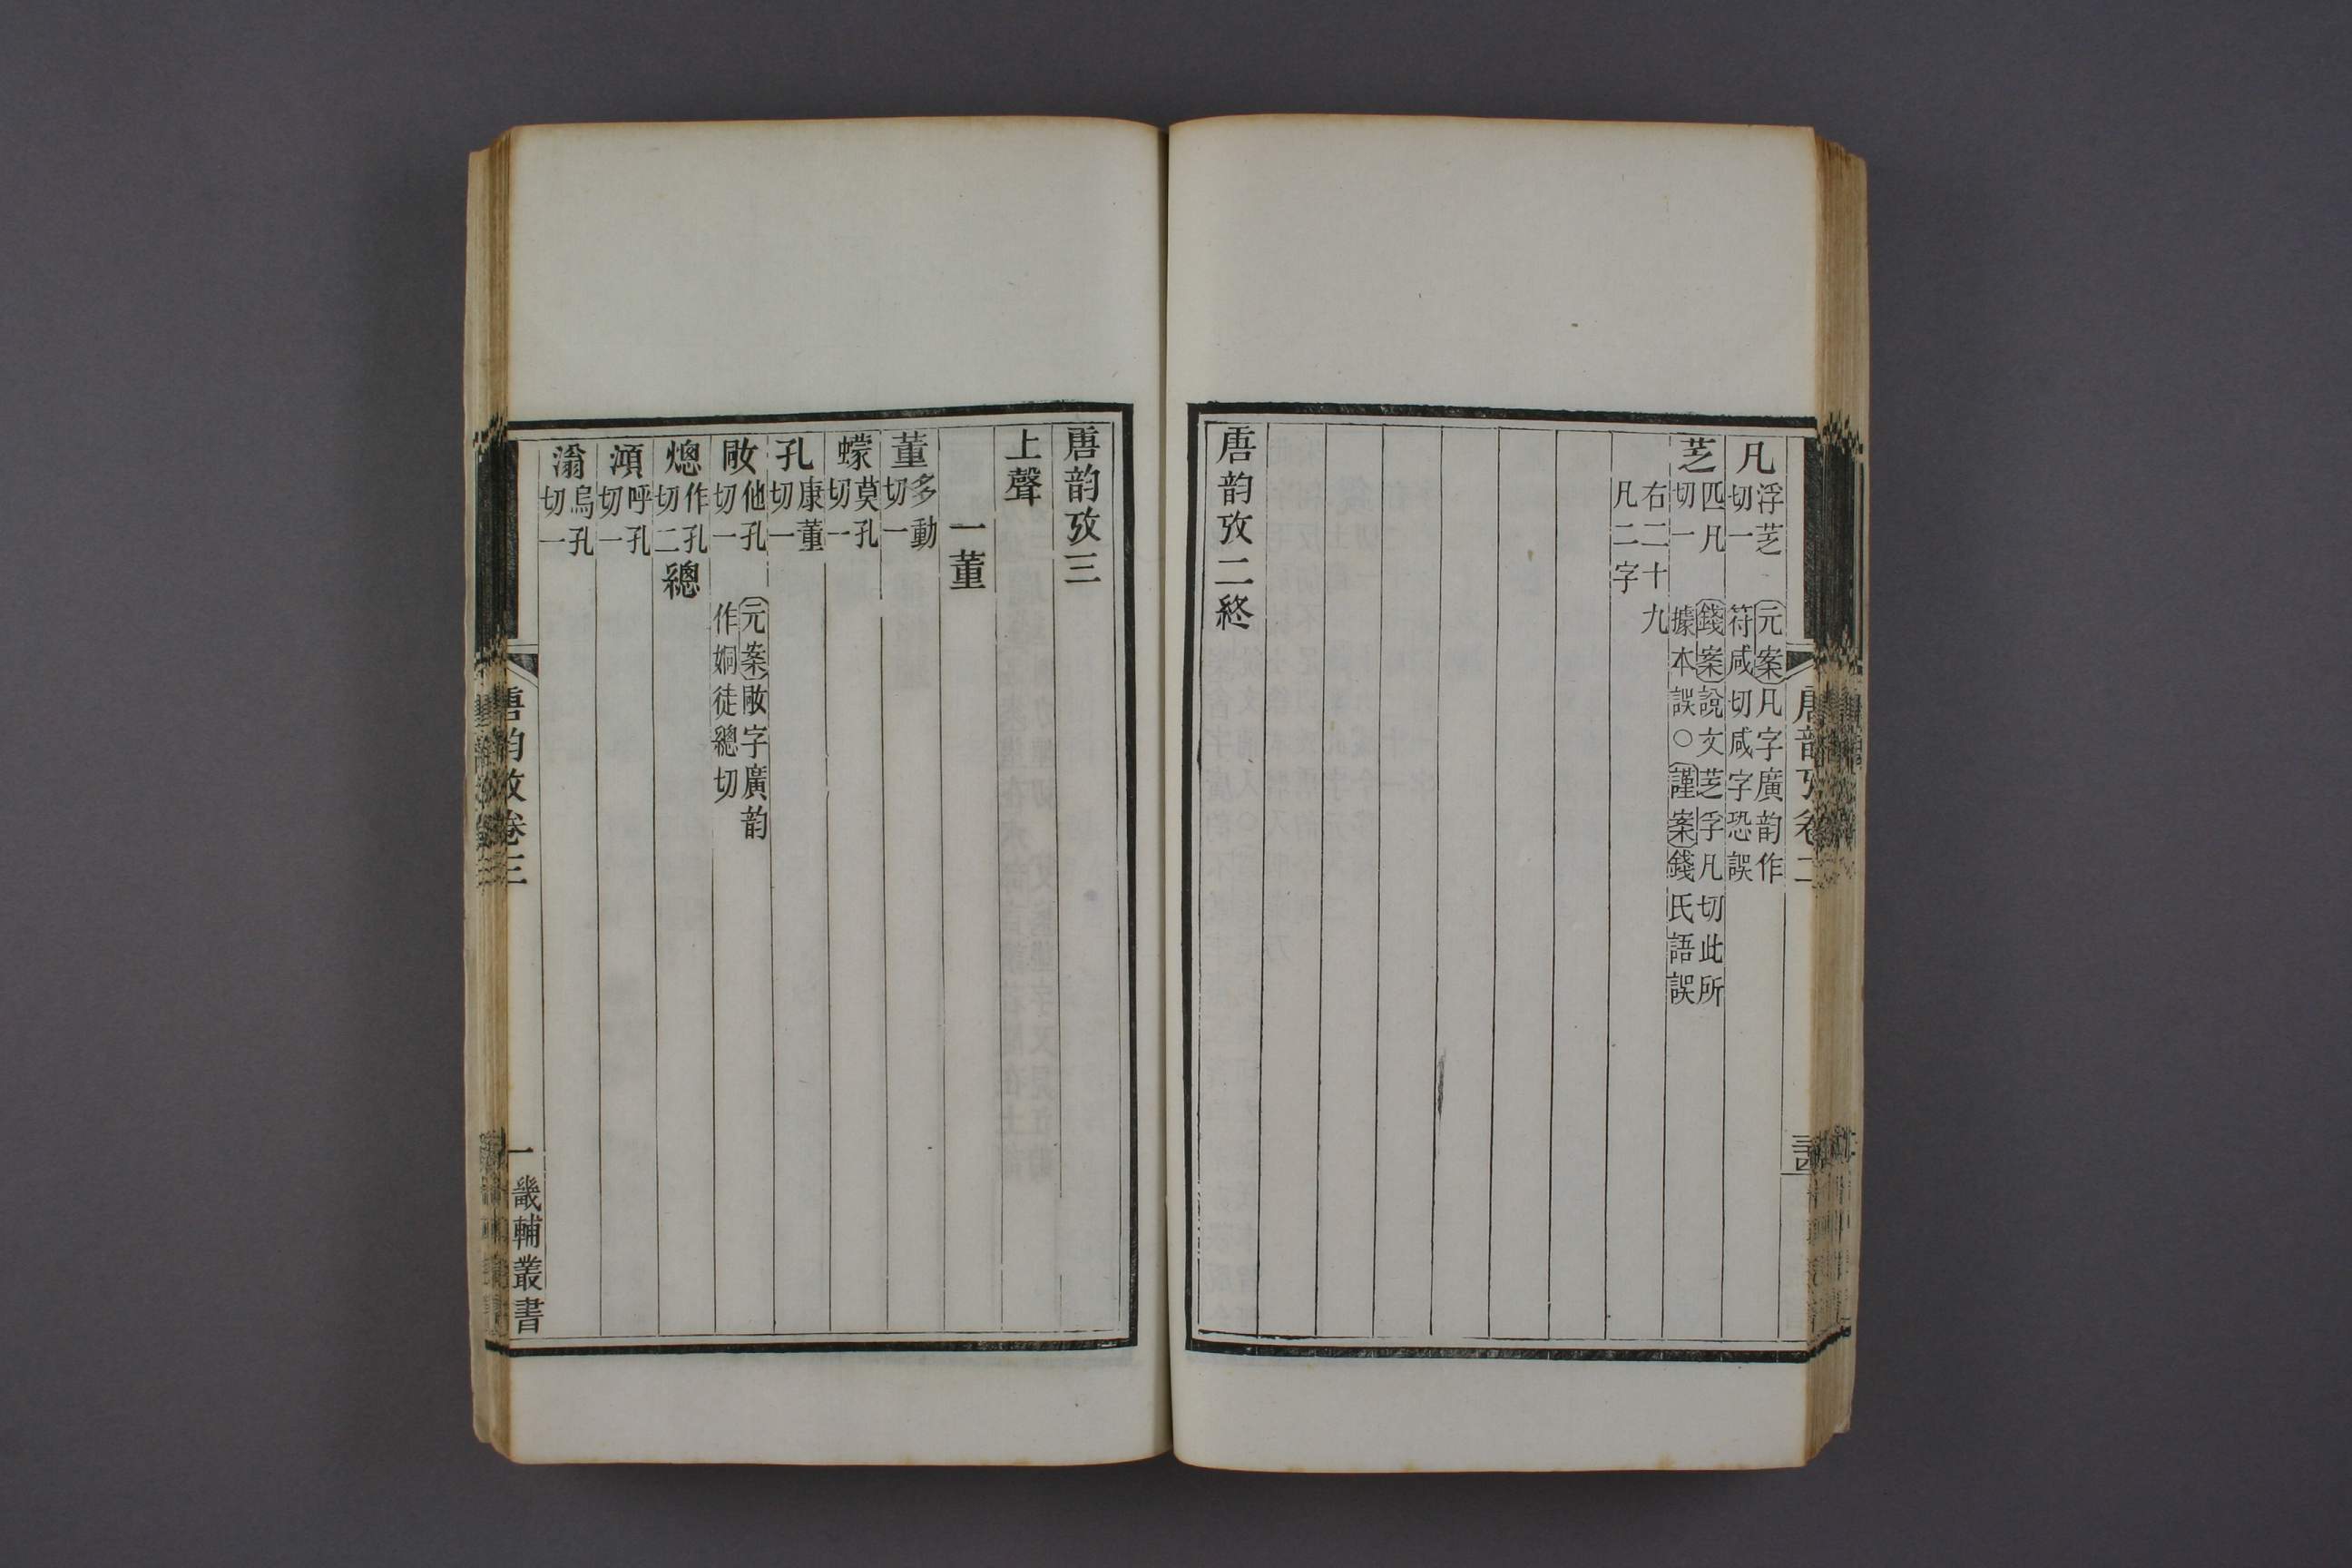 凡浮芝切一元案凡字廣韵作符咸切咸字恐誤
芝匹凡切一錢案說文芝孚凡切此所據本誤○謹案錢氏語誤
右二十九凡二字
唐韵攷二終
唐韵攷三
上聲
一董
董多動切一
蠓莫孔切一
孔康董切一
㪌他孔切一元案㪌字廣韵作㛚徒總切
熜作孔切二總
澒呼孔切一
滃烏孔切一
唐韵攷卷三
一
畿輔叢書